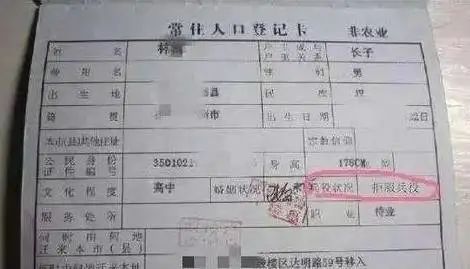 常住人口登记卡 非农业
姓名 林 户主或与户主关系 长子
曾用名 性别 男
出生地 县 民族
籍贯 市 出生日期
本市(县)其他住址 宗教信仰
公民身份证件编号 3501021 身高 175CM
文化程度 高中 婚姻状况 兵役状况 拒服兵役
服务处所 职业 待业
何时由何地迁来本市(县)
何时由何地迁来本址 楼区达明路59号转入